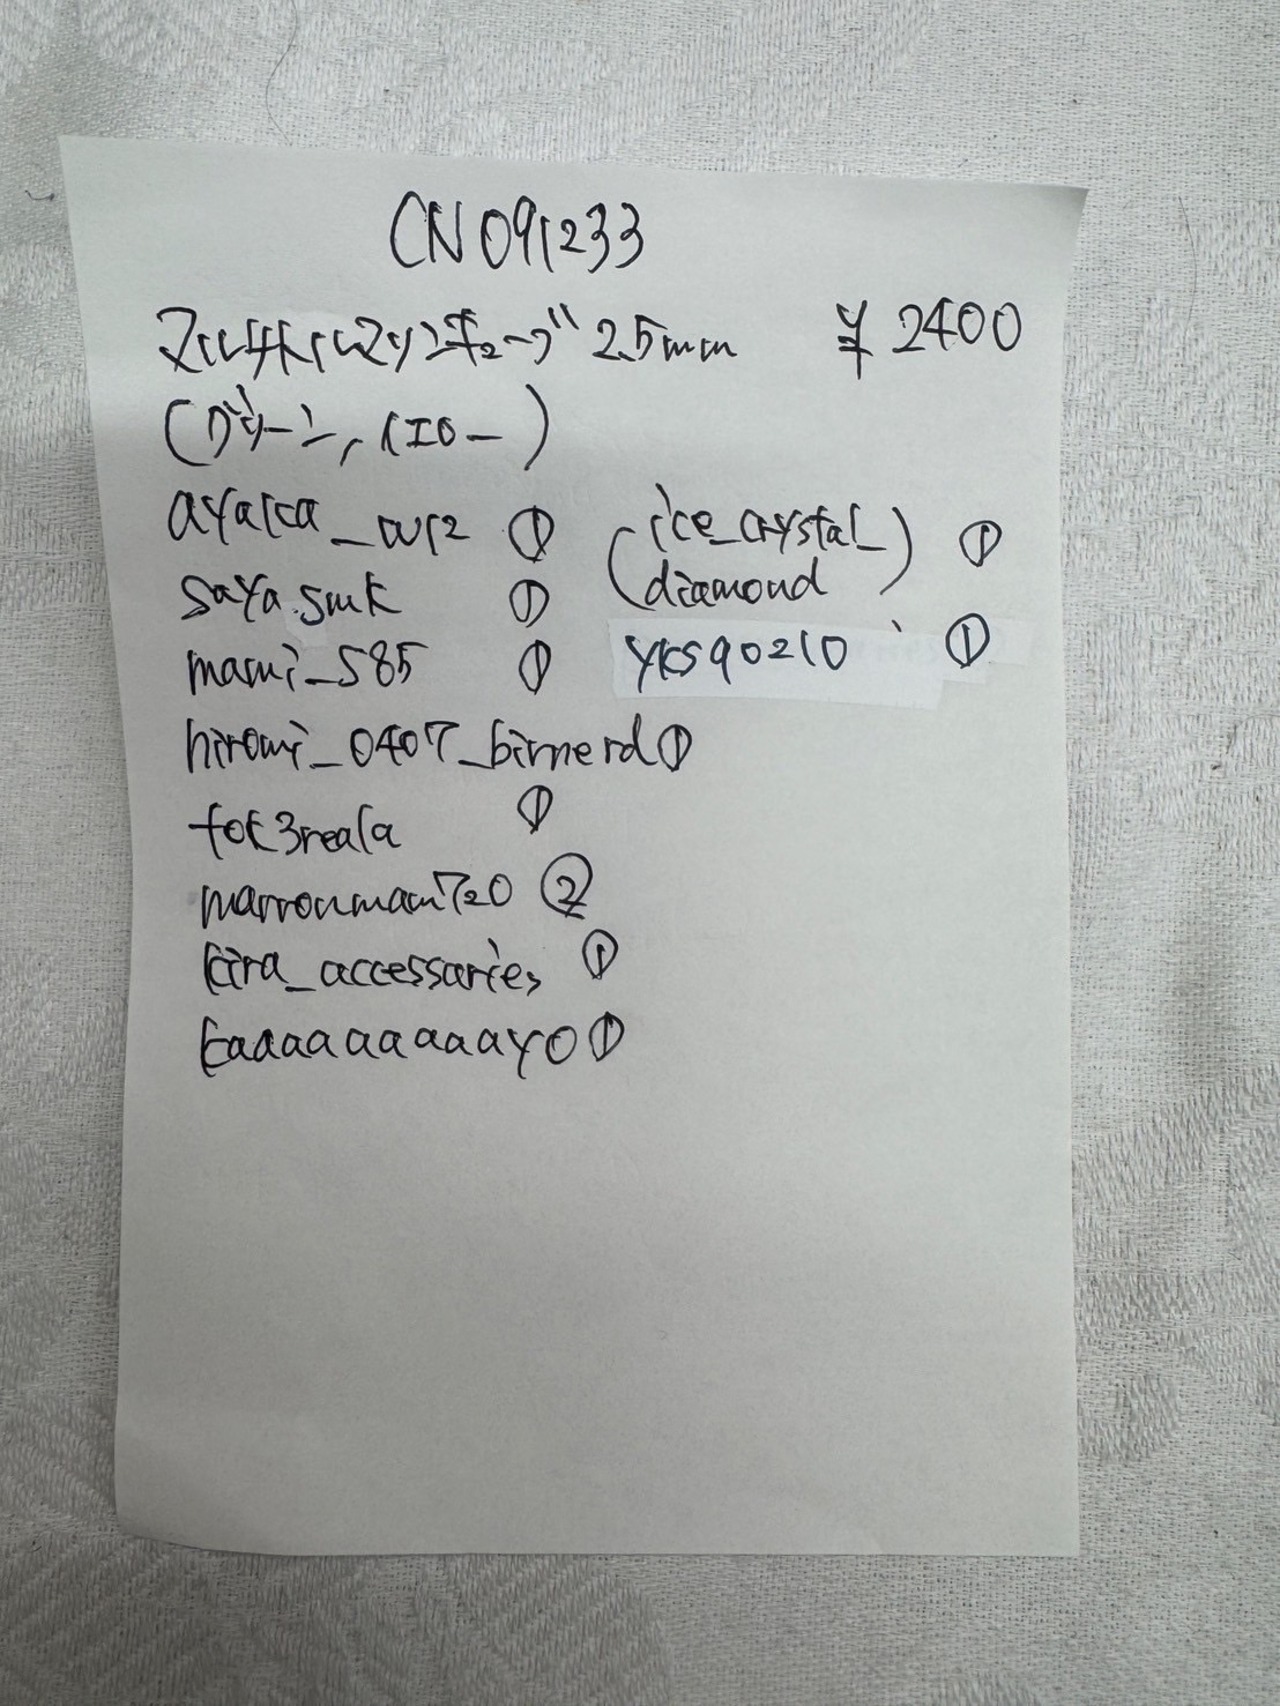 CN091233
マルチカルマリンチューブ 2.5mm ¥2400
(グリーン, イエロー)
ayaka_wr2 ①
saya.smk ①
mami_585 ①
hiromi_0407_birnerd ①
tok3reala ①
marronmam720 ②
kira_accessaries ①
kaaaaaaaaayo ①
(ice_crystal_
diamond) ①
yks90210 ①